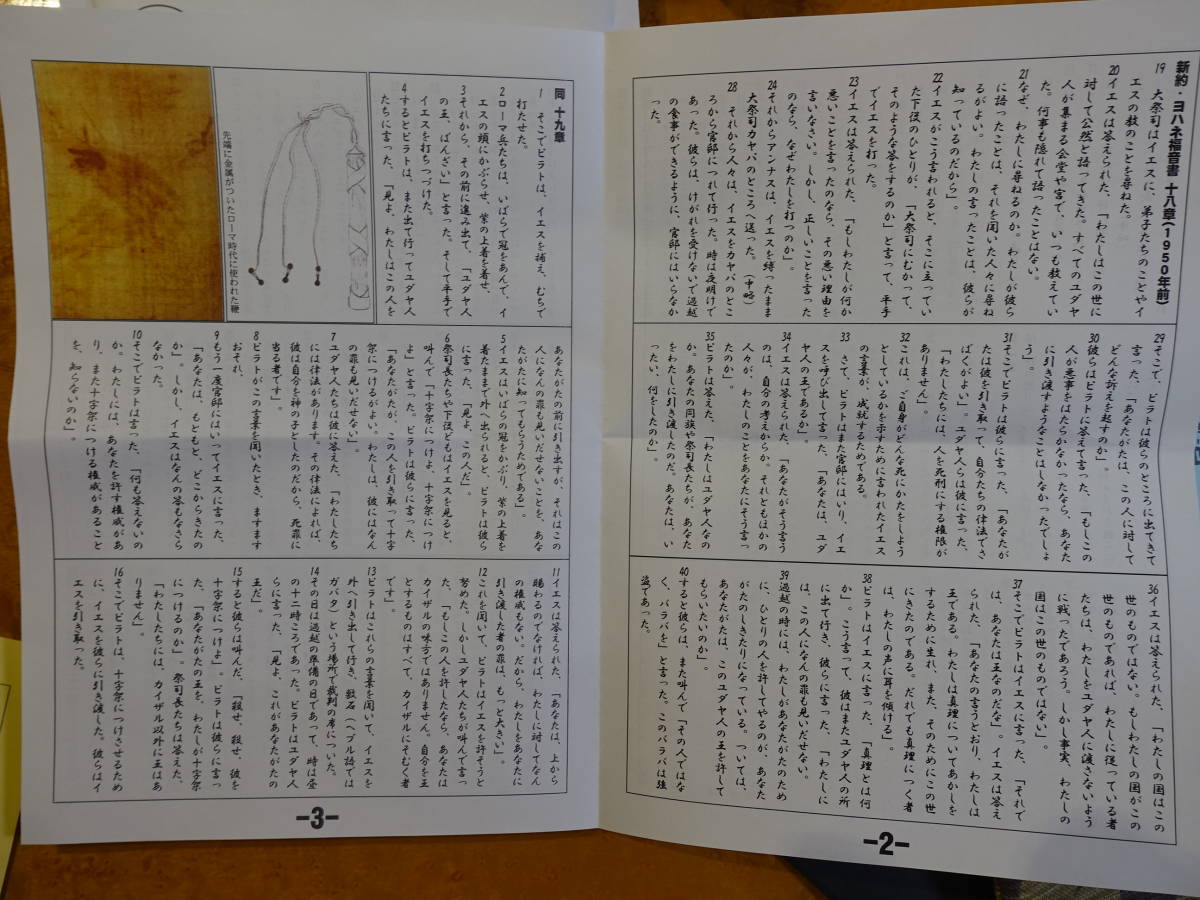 新約・ヨハネ福音書 十八章(1950年前)
19 大祭司はイエスに、弟子たちのことやイ
エスの教のことを尋ねた。
20 イエスは答えられた、「わたしはこの世に
対して公然と語ってきた。すべてのユダヤ
人が集まる会堂や宮で、いつも教えてい
た。何事も隠れて語ったことはない。
21 なぜ、わたしに尋ねるのか。わたしが彼ら
に語ったことは、それを聞いた人々に尋ね
るがよい。わたしの言ったことは、彼らが
知っているのだから」。
22 イエスがこう言われると、そこに立ってい
た下役のひとりが、「大祭司にむかって、
そのような答をするのか」と言って、平手
でイエスを打った。
23 イエスは答えられた、「もしわたしが何か
悪いことを言ったのなら、その悪い理由を
言いなさい。しかし、正しいことを言った
のなら、なぜわたしを打つのか」。
24 それからアンナスは、イエスを縛ったまま
大祭司カヤパのところへ送った。(中略)
28 それから人々は、イエスをカヤパのとこ
ろから官邸につれて行った。時は夜明けで
あった。彼らは、けがれを受けないで過越
の食事ができるように、官邸にはいらなか
った。
29 そこで、ピラトは彼らのところに出てきて
言った、「あなたがたは、この人に対して
どんな訴えを起すのか」。
30 彼らはピラトに答えて言った、「もしこの
人が悪事をはたらかなかったなら、あなた
に引き渡すようなことはしなかったでしょ
う」。
31 そこでピラトは彼らに言った、「あなたが
たは彼を引き取って、自分たちの律法でさ
ばくがよい」。ユダヤ人らは彼に言った、
「わたしたちには、人を死刑にする権限が
ありません」。
32 これは、ご自身がどんな死にかたをしよう
としているかを示すために言われたイエス
の言葉が、成就するためである。
33 さて、ピラトはまた官邸にはいり、イエ
スを呼び出して言った、「あなたは、ユダ
ヤ人の王であるか」。
34 イエスは答えられた、「あなたがそう言う
のは、自分の考えからか。それともほかの
人々が、わたしのことをあなたにそう言っ
たのか」。
35 ピラトは答えた、「わたしはユダヤ人なの
か。あなたの同族や祭司長たちが、あなた
をわたしに引き渡したのだ。あなたは、い
ったい、何をしたのか」。
36 イエスは答えられた、「わたしの国はこの
世のものではない。もしわたしの国がこの
世のものであれば、わたしに従っている者
たちは、わたしをユダヤ人に渡さないよう
に戦ったであろう。しかし事実、わたしの
国はこの世のものではない」。
37 そこでピラトはイエスに言った、「それで
は、あなたは王なのだな」。イエスは答え
られた、「あなたの言うとおり、わたしは
王である。わたしは真理についてあかしを
するために生れ、また、そのためにこの世
にきたのである。だれでも真理につく者
は、わたしの声に耳を傾ける」。
38 ピラトはイエスに言った、「真理とは何
か」。こう言って、彼はまたユダヤ人の所
に出て行き、彼らに言った、「わたしに
は、この人になんの罪も見いだせない。
39 過越の時には、わたしがあなたがたのため
に、ひとりの人を許してやるのが、あなた
がたのしきたりになっている。ついては、
あなたがたは、このユダヤ人の王を許して
もらいたいのか」。
40 すると彼らは、また叫んで「その人ではな
く、バラバを」と言った。このバラバは強
盗であった。
-2-
同 十九章
1 そこでピラトは、イエスを捕え、むちで
打たせた。
2 ローマ兵たちは、いばらで冠をあんで、イ
エスの頭にかぶらせ、紫の上着を着せ、
3 それから、その前に進み出て、「ユダヤ人
の王、ばんざい」と言った。そして平手で
イエスを打ちつづけた。
4 するとピラトは、また出て行ってユダヤ人
たちに言った、「見よ、わたしはこの人を
先端に金属がついたローマ時代に使われた鞭
あなたがたの前に引き出すが、それはこの
人になんの罪も見いだせないことを、あな
たがたに知ってもらうためである」。
5 イエスはいばらの冠をかぶり、紫の上着を
着たままで外へ出られると、ピラトは彼ら
に言った、「見よ、この人だ」。
6 祭司長たちや下役どもはイエスを見ると、
叫んで「十字架につけよ、十字架につけ
よ」と言った。ピラトは彼らに言った、
「あなたがたが、この人を引き取って十字
架につけるがよい。わたしは、彼にはなん
の罪も見いだせない」。
7 ユダヤ人たちは彼に答えた、「わたしたち
には律法があります。その律法によれば、
彼は自分を神の子としたのだから、死罪に
当る者です」。
8 ピラトがこの言葉を聞いたとき、ますます
おそれ、
9 もう一度官邸にはいってイエスに言った、
「あなたは、もともと、どこからきたの
か」。しかし、イエスはなんの答もなさら
なかった。
10 そこでピラトは言った、「何も答えないの
か。わたしには、あなたを許す権威があ
り、また十字架につける権威があること
を、知らないのか」。
11 イエスは答えられた、「あなたは、上から
賜わるのでなければ、わたしに対してなん
の権威もない。だから、わたしをあなたに
引き渡した者の罪は、もっと大きい」。
12 これを聞いて、ピラトはイエスを許そうと
努めた。しかしユダヤ人たちが叫んで言っ
た、「もしこの人を許したなら、あなたは
カイザルの味方ではありません。自分を王
とするものはすべて、カイザルにそむく者
です」。
13 ピラトはこれらの言葉を聞いて、イエスを
外へ引き出して行き、敷石(ヘブル語では
ガバタ)という場所で裁判の席についた。
14 その日は過越の準備の日であって、時は昼
の十二時ころであった。ピラトはユダヤ人
らに言った、「見よ、これがあなたがたの
王だ」。
15 すると彼らは叫んだ、「殺せ、殺せ、彼を
十字架につけよ」。ピラトは彼らに言っ
た、「あなたがたの王を、わたしが十字架
につけるのか」。祭司長たちは答えた、
「わたしたちには、カイザル以外に王はあ
りません」。
16 そこでピラトは、十字架につけさせるため
に、イエスを彼らに引き渡した。彼らはイ
エスを引き取った。
-3-